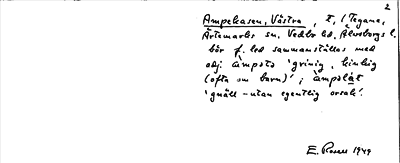 2
Ampekasen, Västra, t, (Tegane,
Ärtemarks sn, Vedbo hd, Älvsborgs l.
bör f. led sammanställas med
adj. ampot 'grinig, kinkig
(ofta om barn)'; ampolåt
'gnäll – utan egentlig orsak'.
E. Rosell 1949